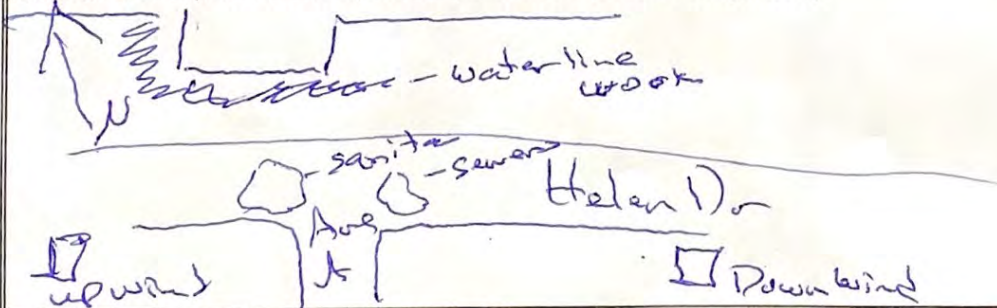 N
waterline
work
sanita
sewer
Helen Dr
Ave
A
upwind
Downwind